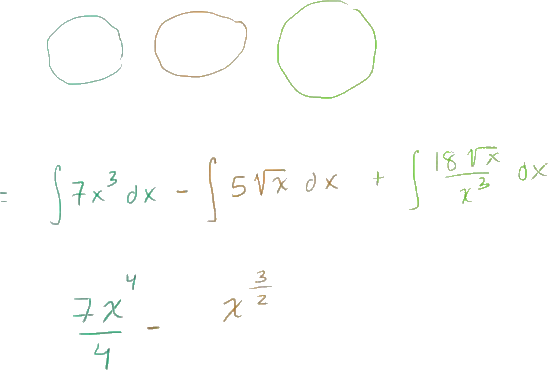 = ∫ 7x³ dx - ∫ 5√x dx + ∫ 18√x/x³ dx
7x⁴/4 - x^(3/2)